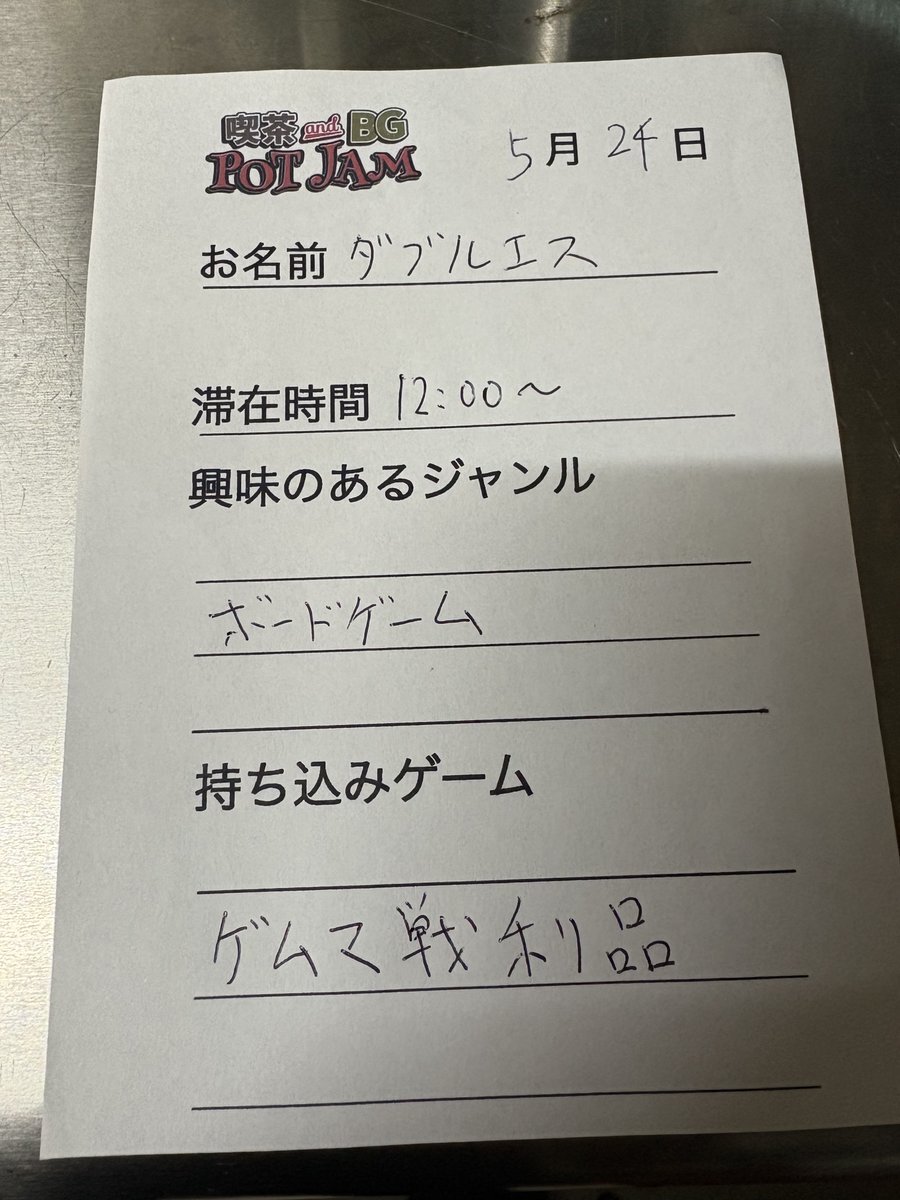 喫茶 and BG
POT JAM
5月24日
お名前 ダブルエス
滞在時間 12:00~
興味のあるジャンル
ボードゲーム
持ち込みゲーム
ゲムマ戦利品